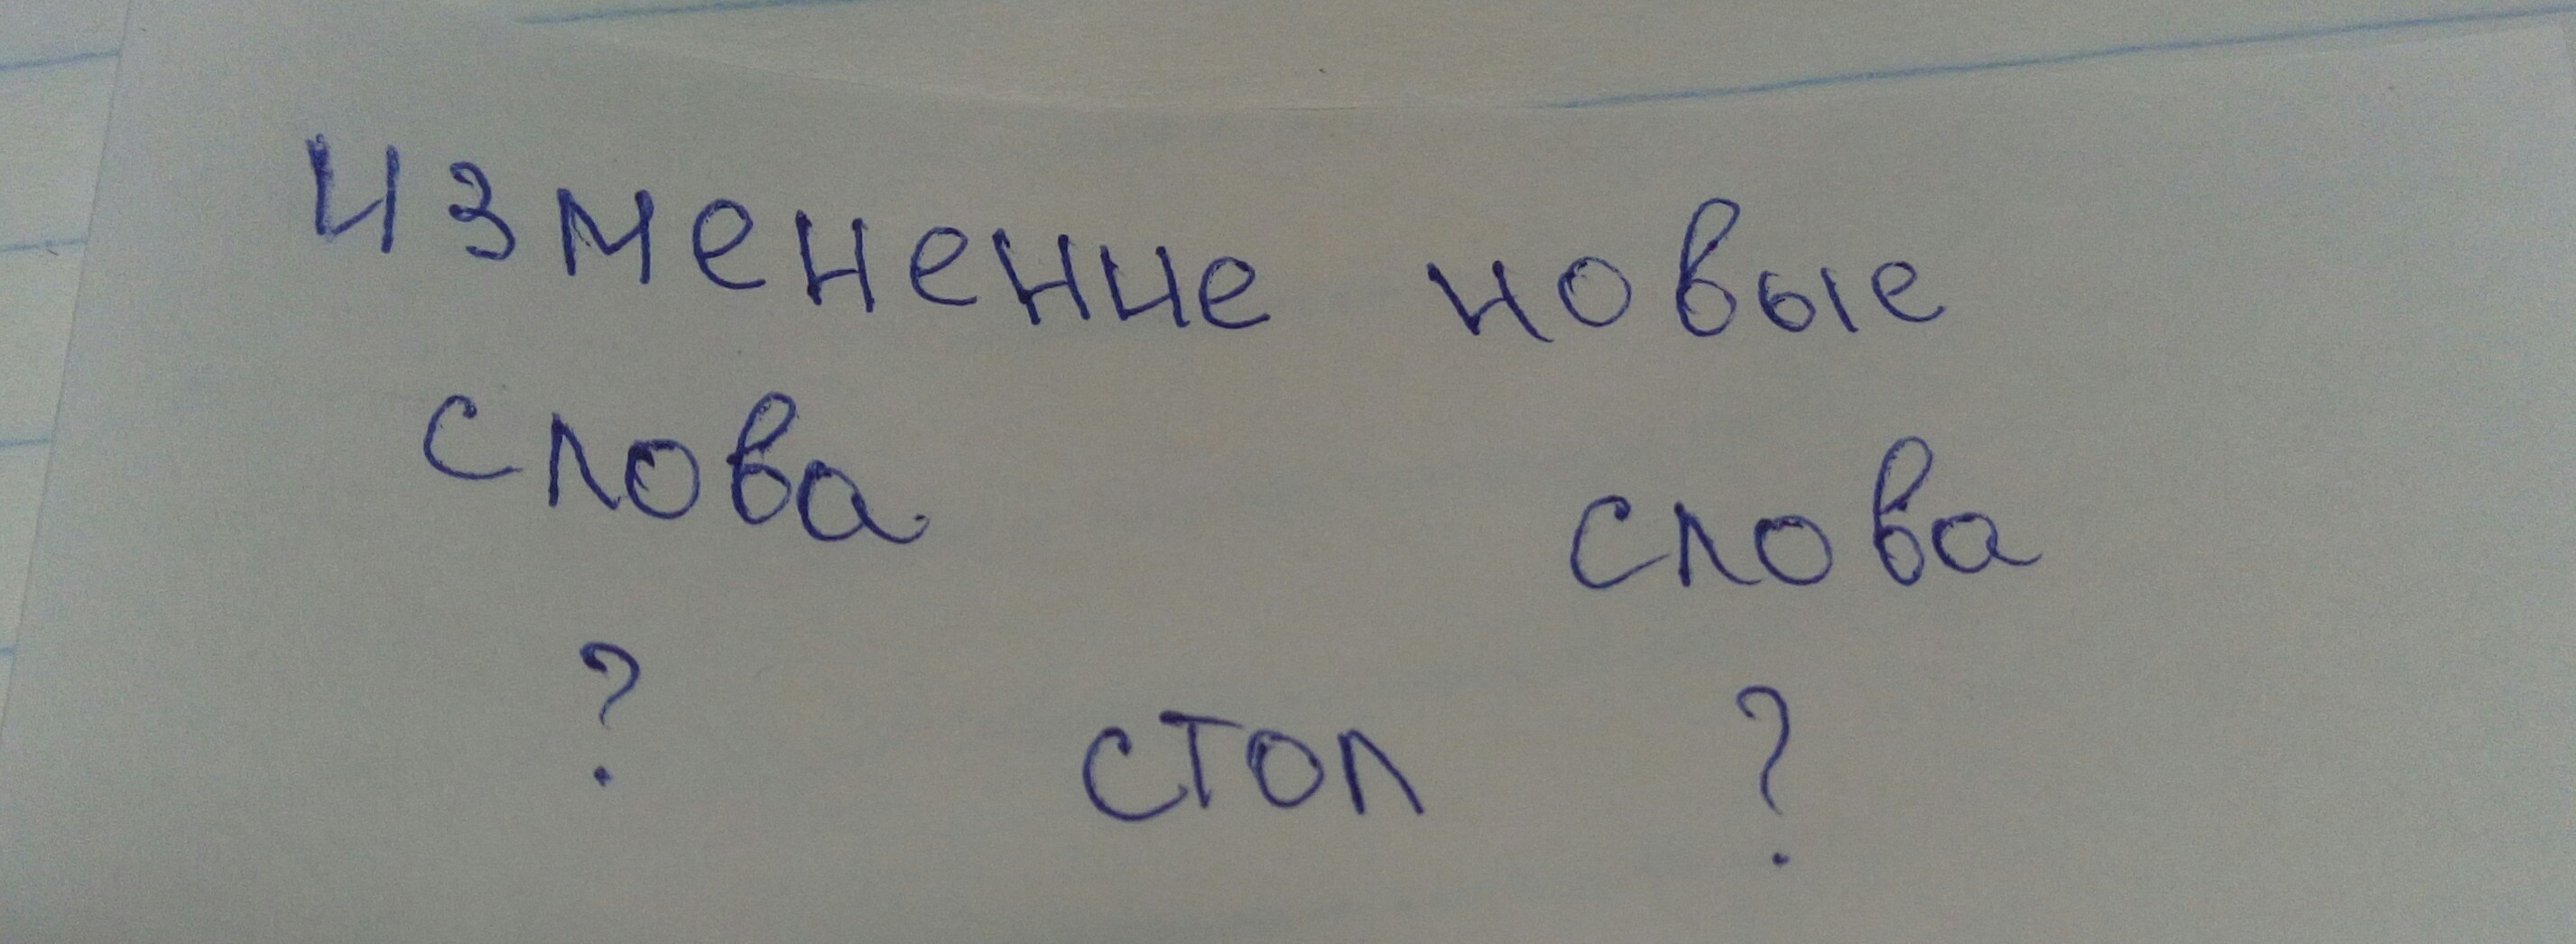 изменение новые
слова слова
? стол ?